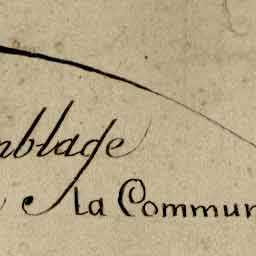 mblage
la Commun